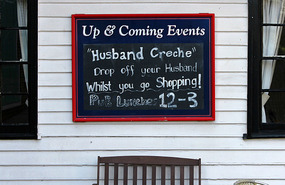 Up & Coming Events
"Husband Creche"
Drop off your Husband
Whilst you go Shopping!
Pub Lunches 12-3